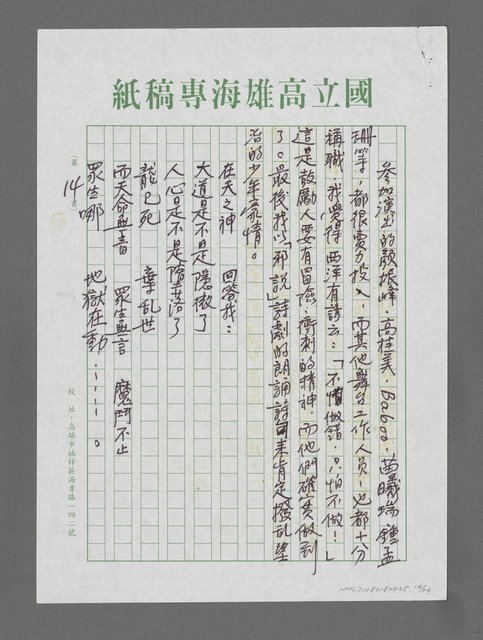 國立高雄海專稿紙
參加演出的顏振峰、高桂美、Baboo、苗曦瑞、鍾孟
珊等，都很賣力投入，而其他舞台工作人員，也都十分
稱職，我覺得西洋有諺云：「不怕做錯，只怕不做！」
這是鼓勵人要有冒險、衝刺的精神，而他們確實做到
了。最後我以「邪說」詩劇的朗誦詩來肯定撥亂望
治的少年豪情。
在天之神 回答我：
大道是不是隱微了
人心是不是陷落了
龍已死 棄亂世
而天命孟音 眾生孟言 魔鬥不止
眾生哪 地獄在動‧‧‧‧‧‧。
第14頁
校址：高雄市楠梓區海專路一四二號
NMTL20080182025, 14/24